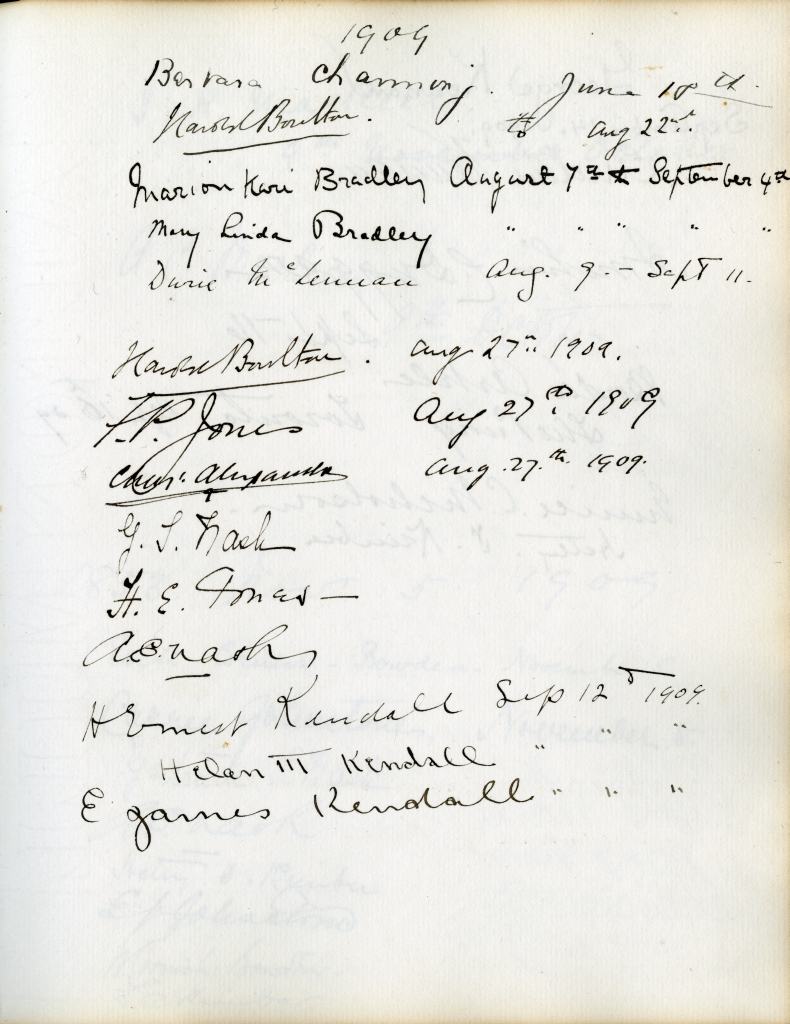 1909
Barbara Channing. June 18th.
Harold Boulton. to Aug 22nd.
Marion Kari Bradley August 7th to September 4th
Mary Linda Bradley " " " " "
Durie McLennan Aug. 9. - Sept 11.
Harold Boulton. Aug 27th 1909.
F.P. Jones Aug 27th 1909
Chas. Alexander Aug. 27.th 1909.
G. S. Nash
H. E. Jones
A.E. Nash
H Ernest Kendall Sep 12th 1909.
Helen M Kendall " " "
E James Kendall " " "